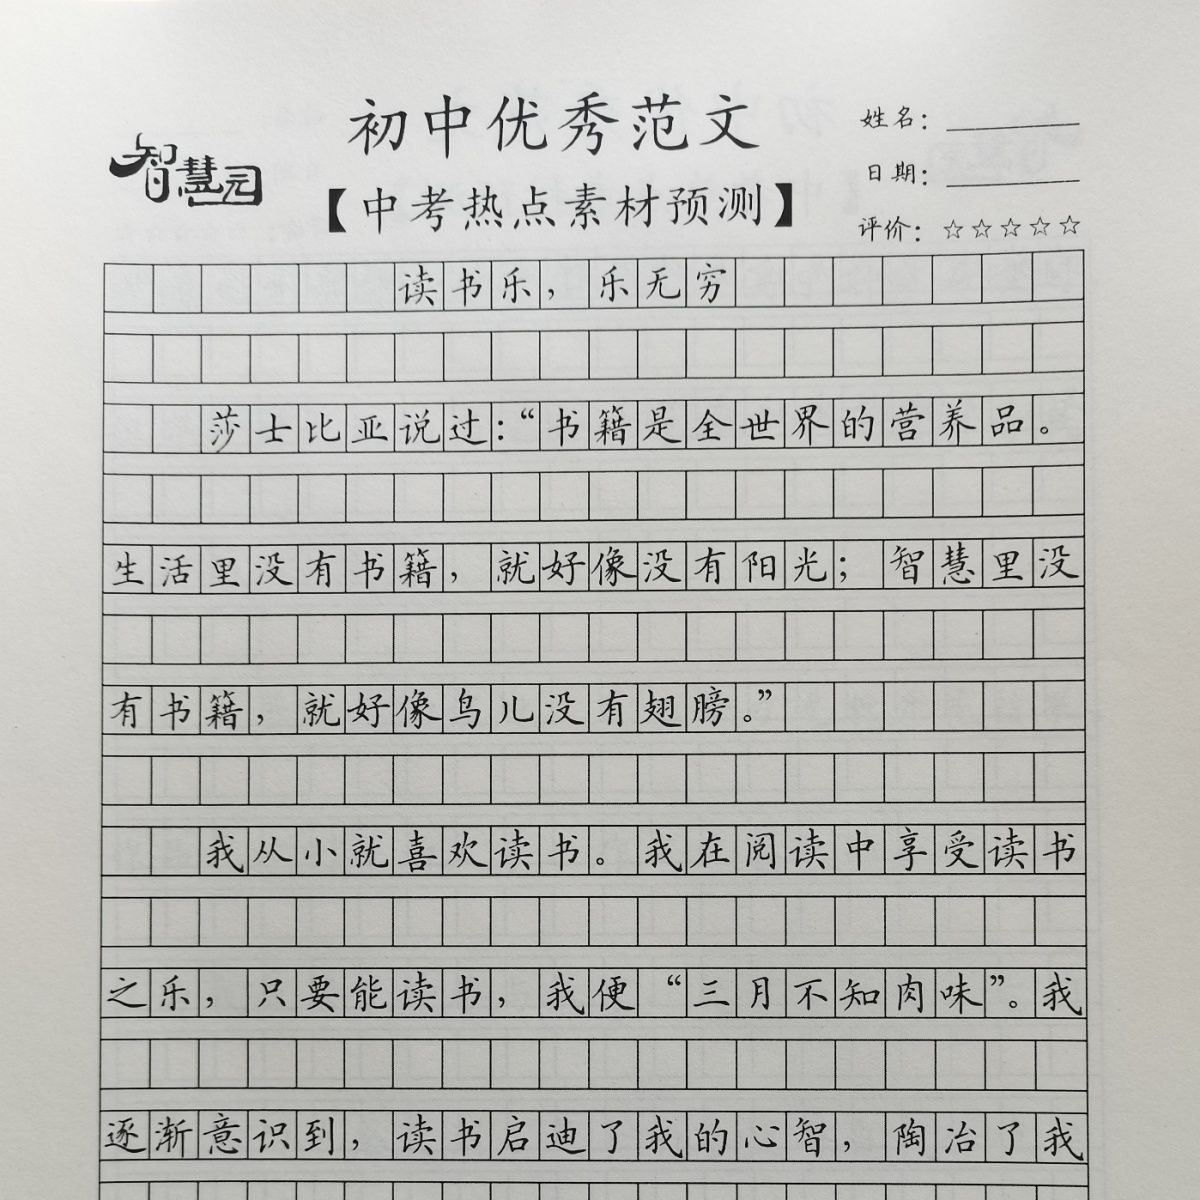 初中优秀范文
智慧园
【中考热点素材预测】
姓名：
日期：
评价：☆☆☆☆☆
读书乐，乐无穷
莎士比亚说过：“书籍是全世界的营养品。
生活里没有书籍，就好像没有阳光；智慧里没
有书籍，就好像鸟儿没有翅膀。”
我从小就喜欢读书。我在阅读中享受读书
之乐，只要能读书，我便“三月不知肉味”。我
逐渐意识到，读书启迪了我的心智，陶冶了我